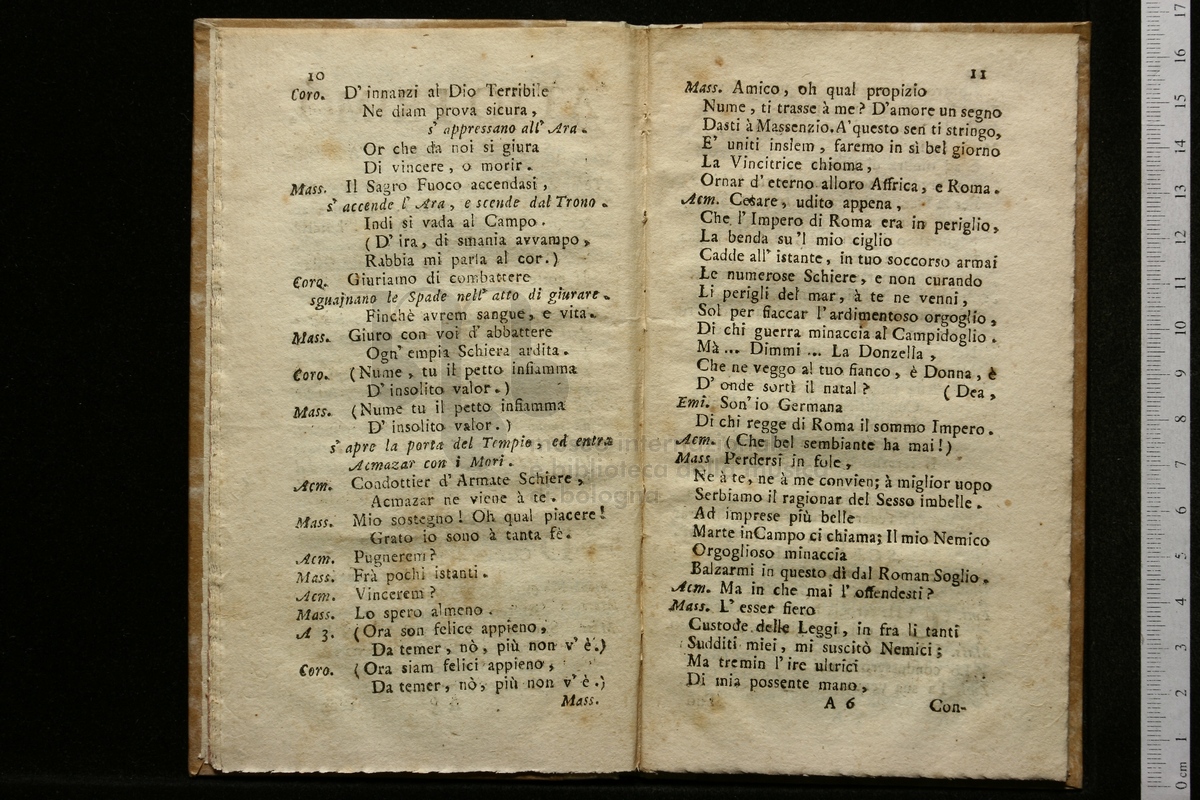 10
Coro. D' innanzi al Dio Terribile
Ne diam prova sicura,
s' appressano all' Ara.
Or che da noi si giura
Di vincere, o morir.
Mass. Il Sagro Fuoco accendasi,
s' accende l' Ara, e scende dal Trono.
Indi si vada al Campo.
(D' ira, di smania avvampo,
Rabbia mi parla al cor.)
Coro. Giuriamo di combattere
sguainano le Spade nell' atto di giurare.
Finchè avrem sangue, e vita.
Mass. Giuro con voi d' abbattere
Ogn' empia Schiera ardita.
Coro. (Nume, tu il petto infiamma
D' insolito valor.)
Mass. (Nume tu il petto infiamma
D' insolito valor.)
s' apre la porta del Tempio, ed entra
Acmazar con i Mori.
Acm. Condottier d' Armate Schiere,
Acmazar ne viene à te.
Mass. Mio sostegno! Oh qual piacere!
Grato io sono à tanta fè.
Acm. Pugnerem?
Mass. Frà pochi istanti.
Acm. Vincerem?
Mass. Lo spero almeno.
A 3. (Ora son felice appieno,
Da temer, nò, più non v' è.)
Coro. (Ora siam felici appieno,
Da temer, nò, più non v' è.)
Mass.
11
Mass. Amico, oh qual propizio
Nume, ti trasse à me? D'amore un segno
Dasti à Massenzio. A' questo sen ti stringo,
E' uniti insiem, faremo in sì bel giorno
La Vincitrice chioma,
Ornar d' eterno alloro Affrica, e Roma.
Acm. Cesare, udito appena,
Che l' Impero di Roma era in periglio,
La benda su 'l mio ciglio
Cadde all' istante, in tuo soccorso armai
Le numerose Schiere, e non curando
Li perigli del mar, à te ne venni,
Sol per fiaccar l' ardimentoso orgoglio,
Di chi guerra minaccia al Campidoglio.
Mà ... Dimmi ... La Donzella,
Che ne veggo al tuo fianco, è Donna, è
D' onde sortì il natal? (Dea,
Emi. Son' io Germana
Di chi regge di Roma il sommo Impero.
Acm. (Che bel sembiante ha mai!)
Mass Perdersi in fole,
Ne à te, ne à me convien; à miglior uopo
Serbiamo il ragionar del Sesso imbelle.
Ad imprese più belle
Marte in Campo ci chiama; Il mio Nemico
Orgoglioso minaccia
Balzarmi in questo dì dal Roman Soglio.
Acm. Ma in che mai l' offendesti?
Mass. L' esser fiero
Custode delle Leggi, in fra li tanti
Sudditi miei, mi suscitò Nemici;
Ma tremin l' ire ultrici
Di mia possente mano,
A 6 Con-